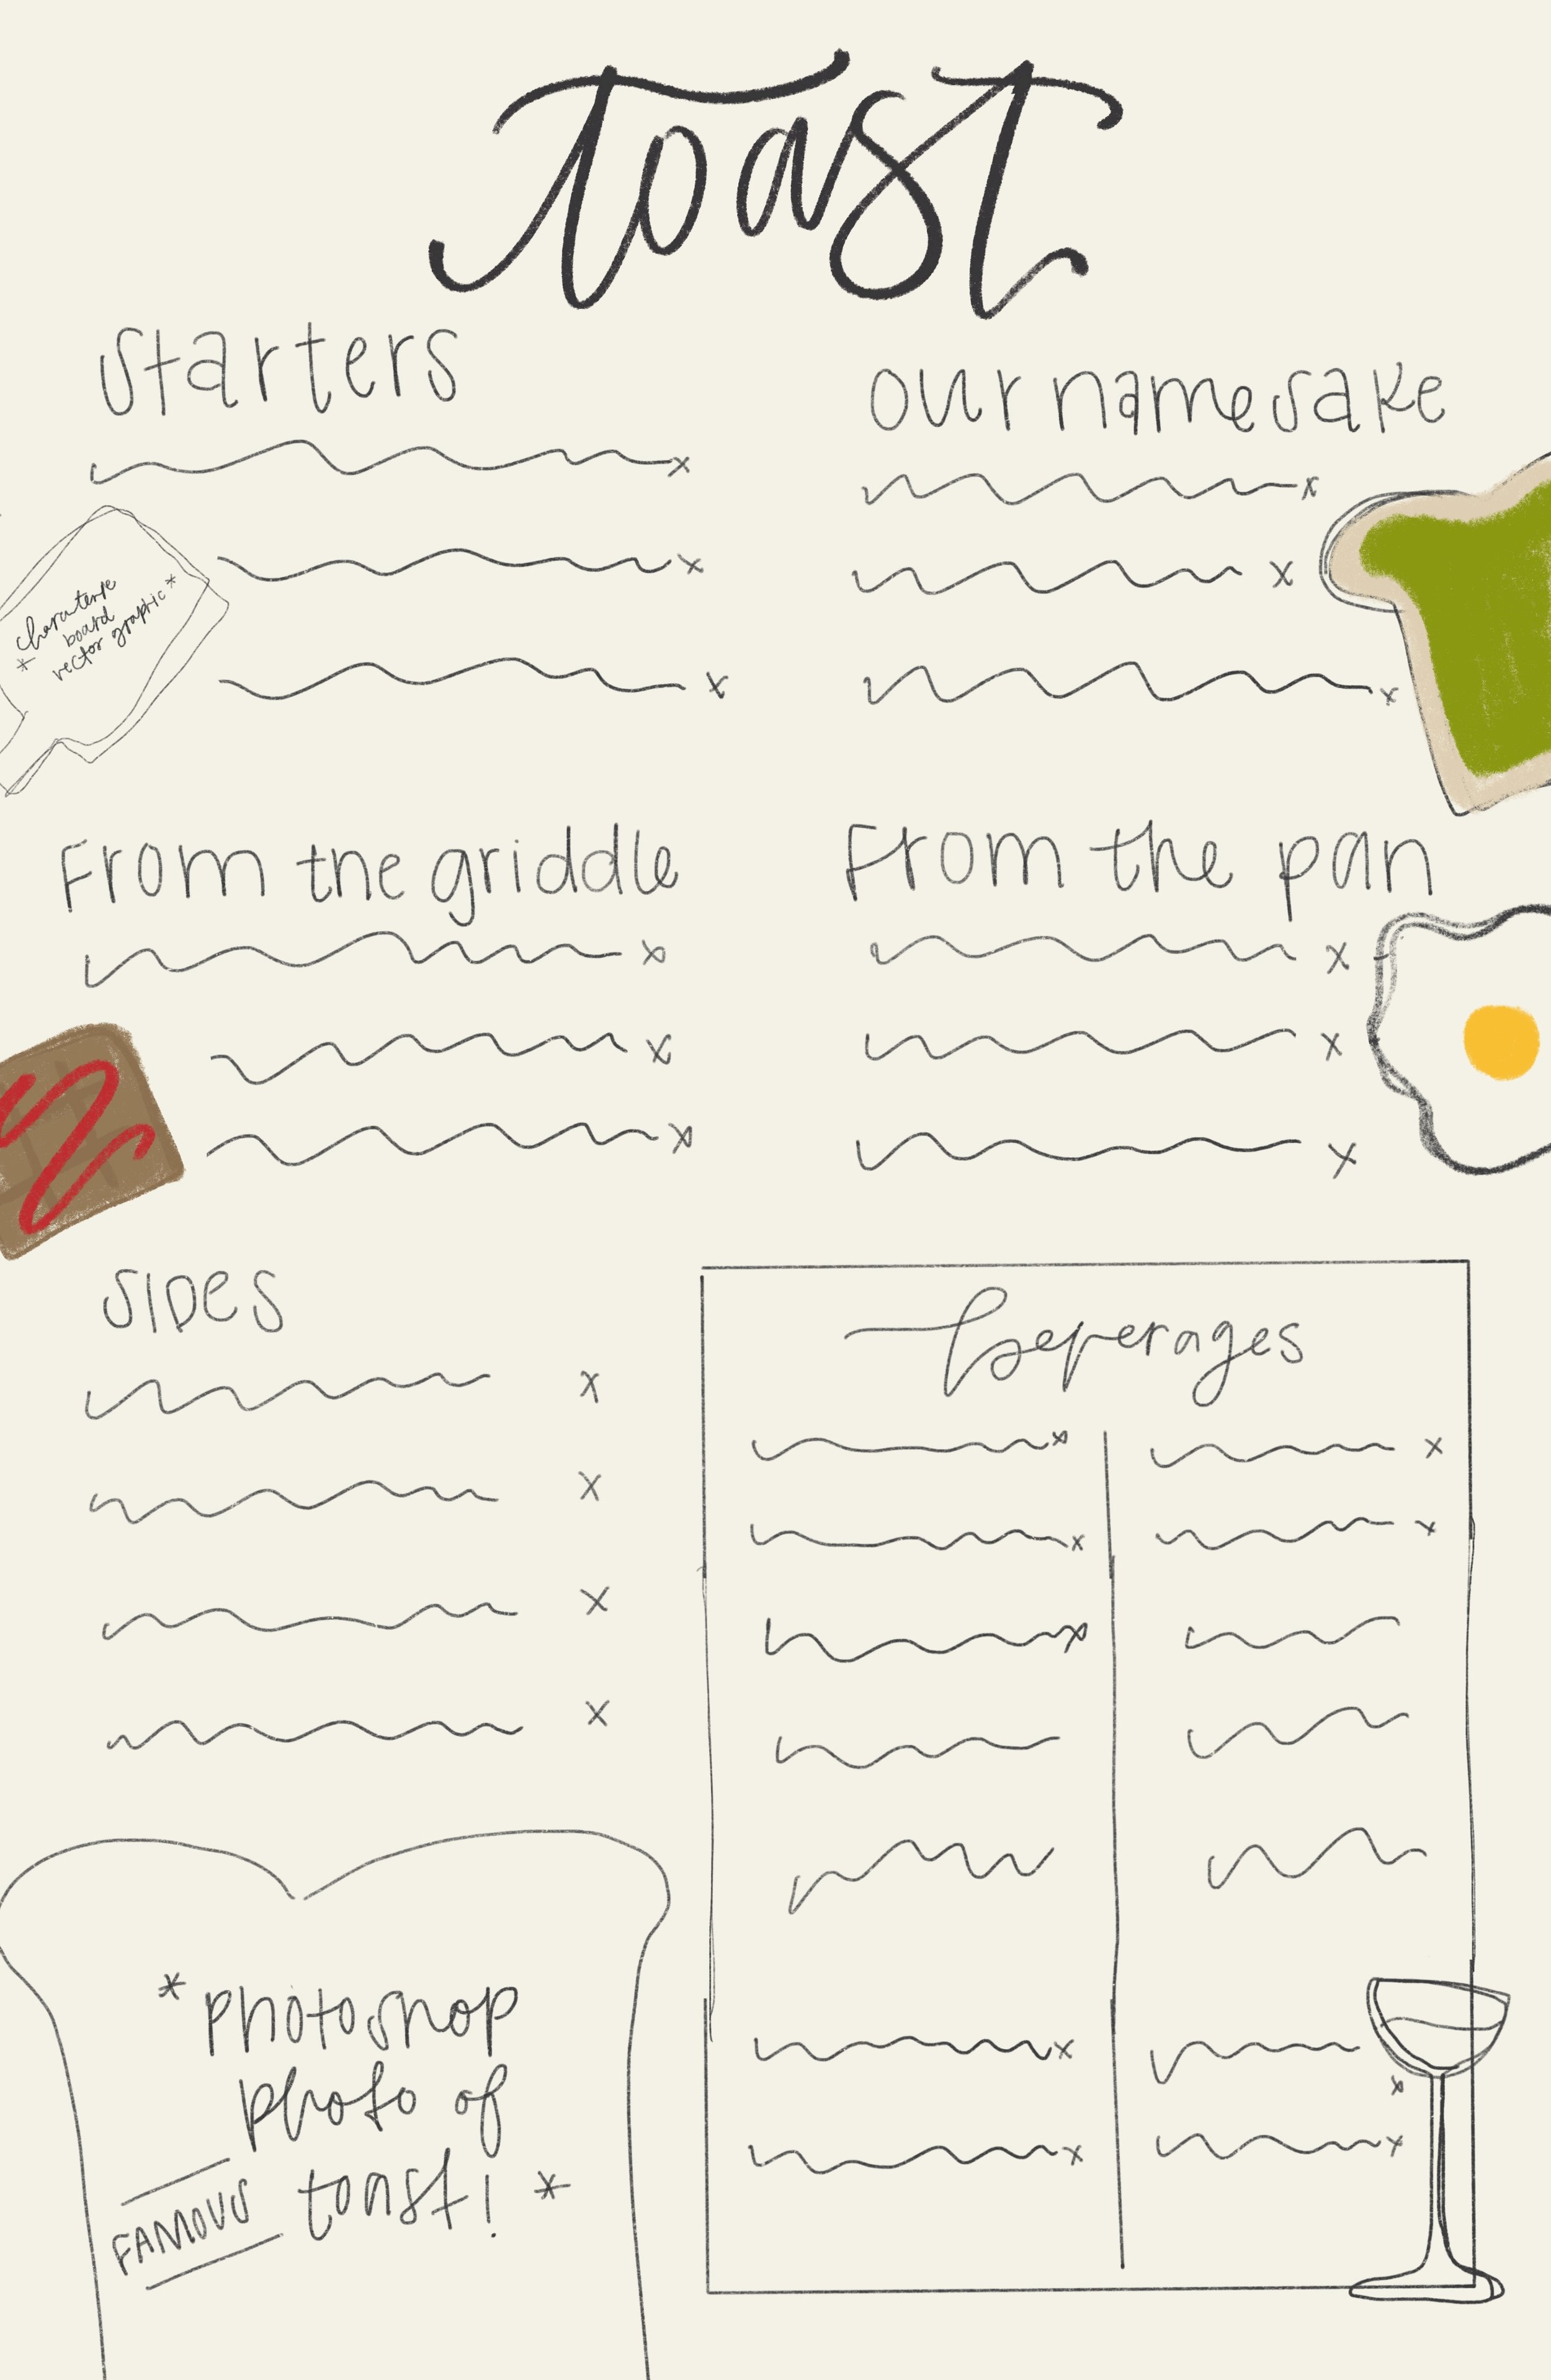 toast
Starters
our namesake
*
board
vector graphic*
From the griddle
From the pan
SIDes
beverages
*photoshop
photo of
FAMOUS toast! *